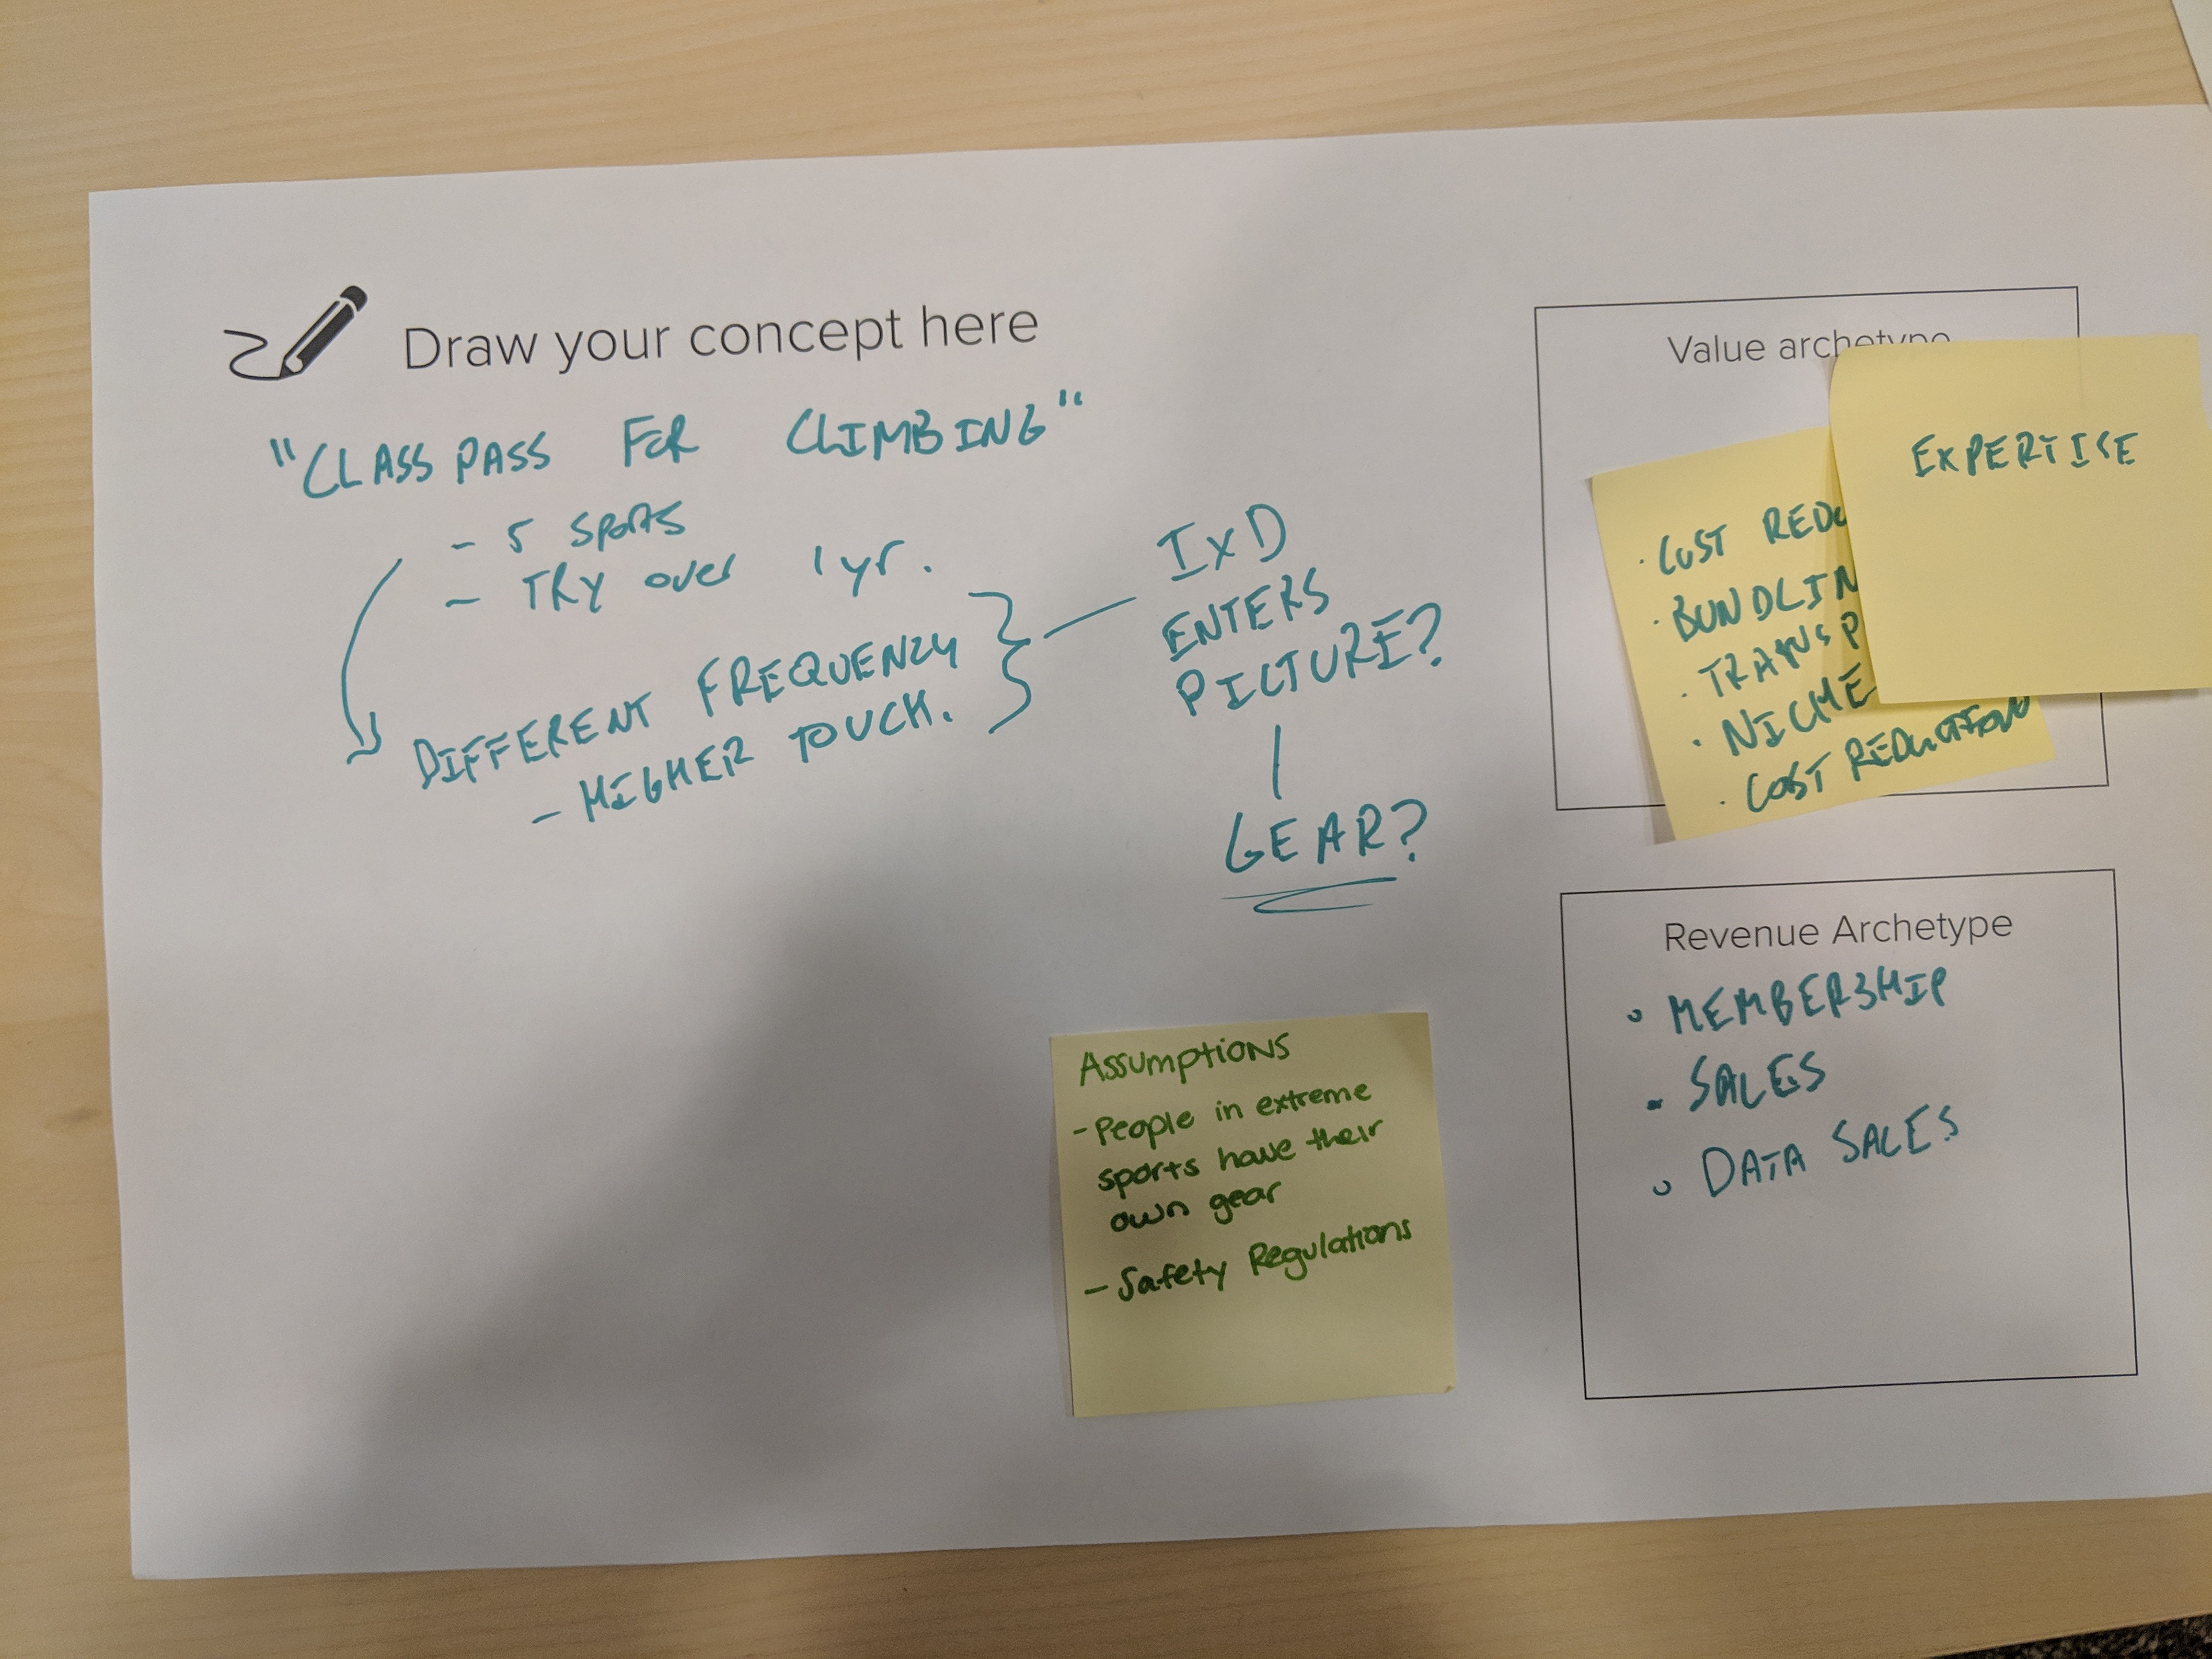 Draw your concept here
"CLASSPASS FOR CLIMBING"
- 5 SPORTS
- TRY over 1 yr.
DIFFERENT FREQUENCY
- HIGHER TOUCH.
IxD
ENTERS
PICTURE?
GEAR?
Value archetype
EXPERTISE
· COST REDU
· BUNDLIN
· TRANSP
· NICHE
· COST REDUCTION
Revenue Archetype
• MEMBERSHIP
• SALES
• DATA SALES
Assumptions
- People in extreme
sports have their
own gear
- Safety Regulations